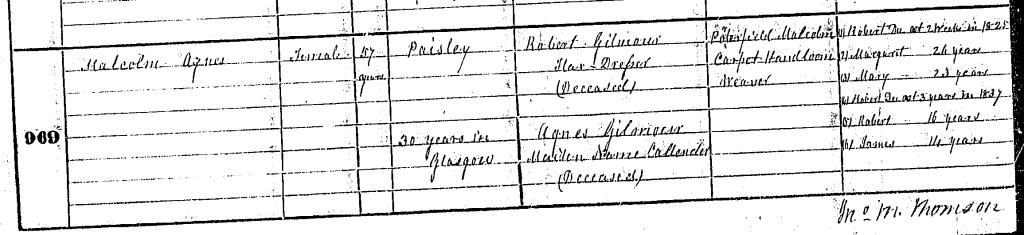 969
Malcolm Agnes
Female
57
years
Paisley
30 years in
Glasgow
Robert Gilmour
Flax-Dresser
(Deceased)
Agnes Gilmour
Maiden Name Callender
(Deceased)
Porterfield Malcolm
Carpet Handloom
Weaver
(1) Robert De. aet 2 weeks in 1825
(2) Margaret 26 years
(3) Mary 23 years
(4) Robert De. aet 3 years in 1837
(5) Robert 16 years
(6) James 14 years
Jno M. Thomson